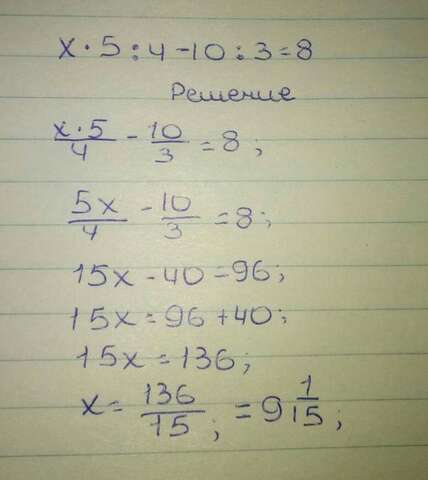 x·5:4-10:3=8
Решение
x·5/4 - 10/3 = 8;
5x/4 - 10/3 = 8;
15x-40=96;
15x=96+40;
15x=136;
x=136/15; =9 1/15;